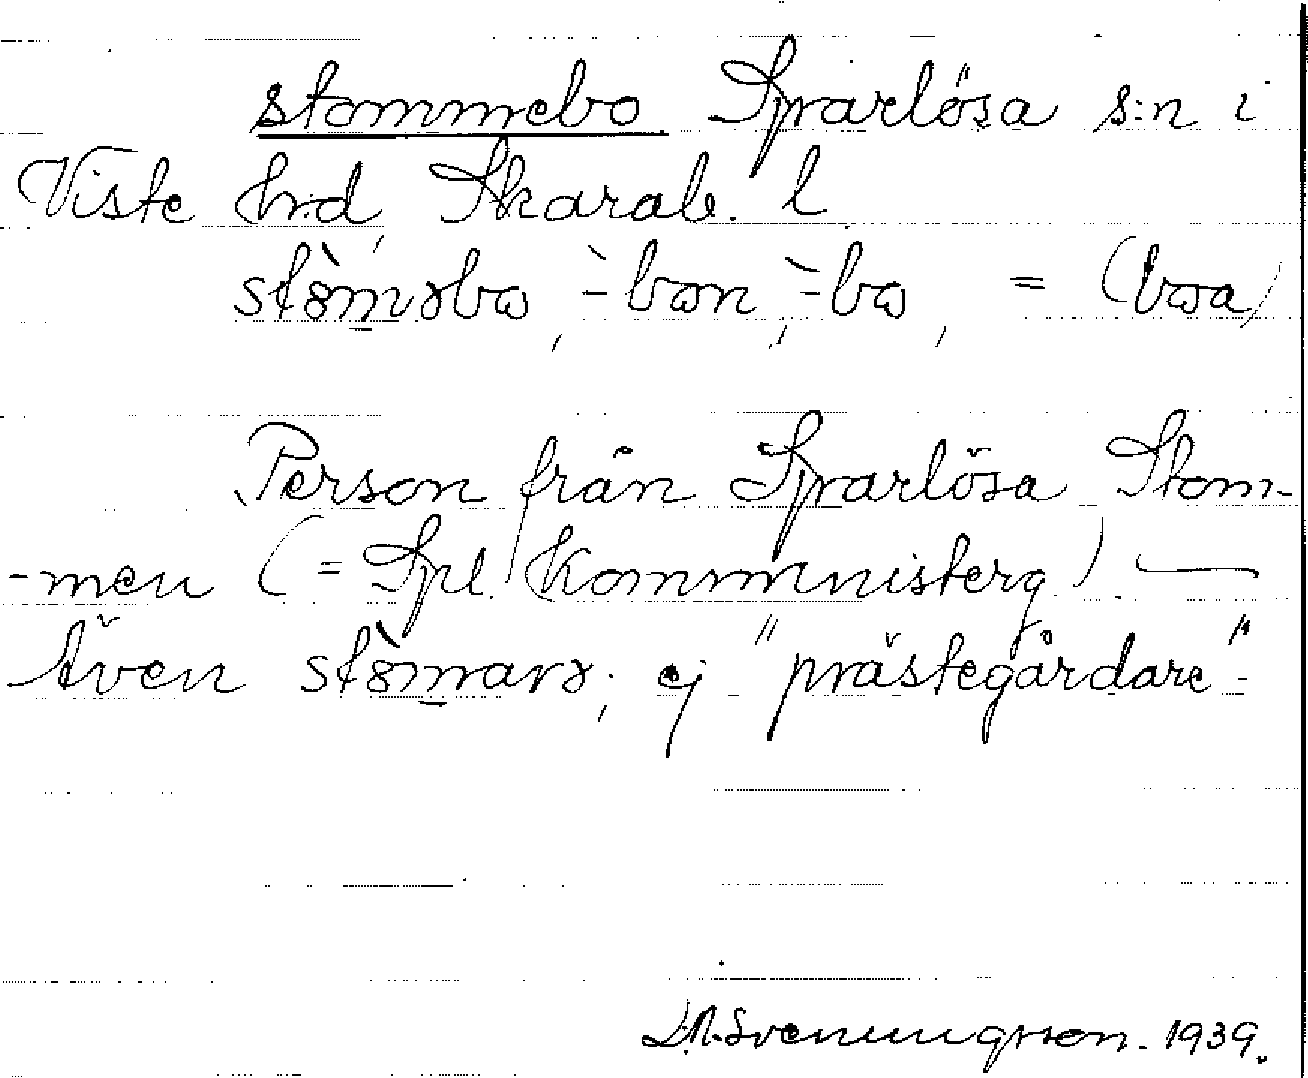 stommebo Sparlösa s:n i
Viste h:d, Skarab. l
stòməbω, ̀-bωn, ̀-bω, = (bωa)
Person från Sparlösa Stom-
-men (= Spl. Kommnisterg.) —
Även stòmarə; ej "prästegårdare"-
Svenungsson. 1939.